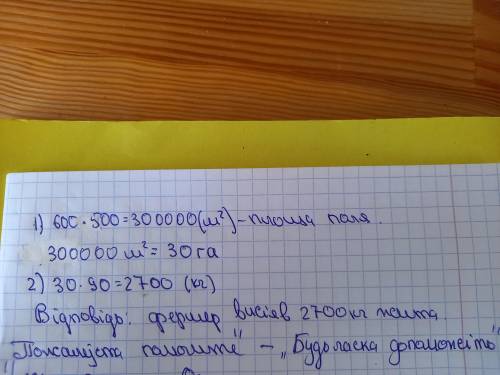 1) 600·500=300000(м²)-площа поля.
300000 м² = 30 га
2) 30·90=2700 (кг)
Відповідь: фермер висіяв 2700кг жита.
"Пожалуста памоците" – „Будьласка допоможіть"